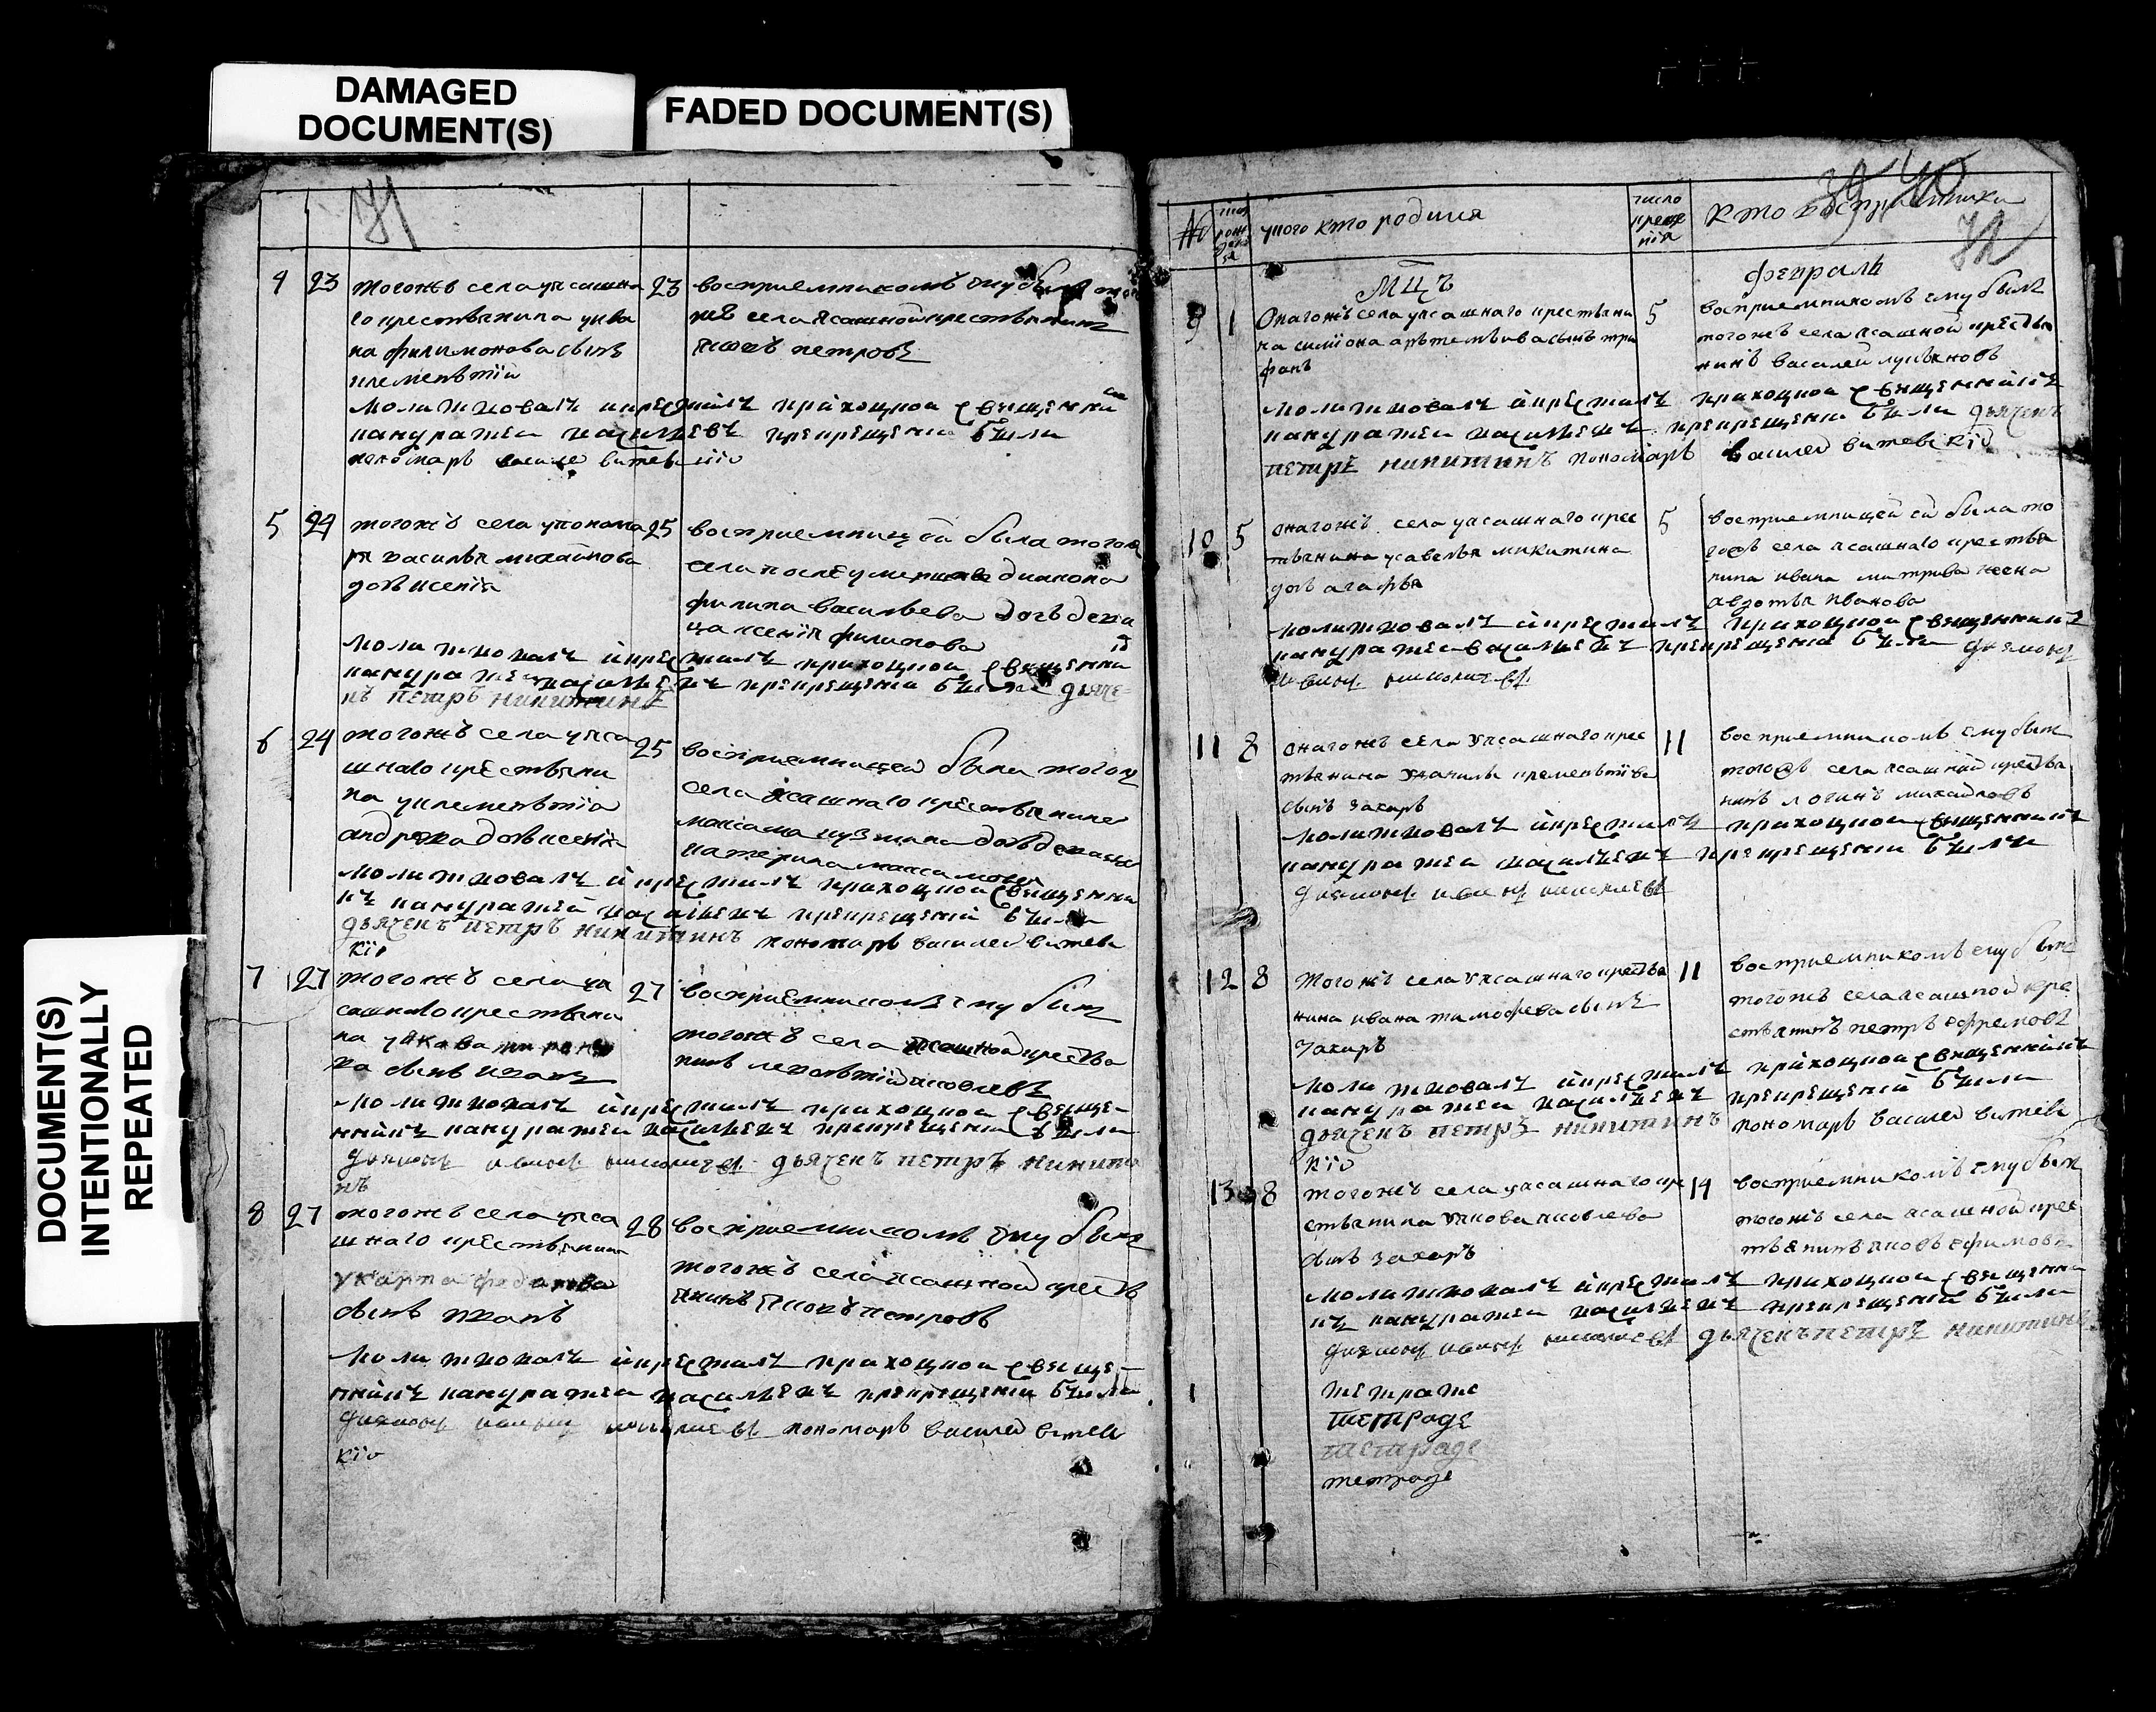 DAMAGED
DOCUMENT(S)
FADED DOCUMENT(S)
DOCUMENT(S)
INTENTIONALLY
REPEATED
71
4 23 тогожъ села уясашна 23 восприемникомъ ему былъ
го крестьянина
на филимонова сынъ
клементїи
жъ села ясашной крестьянинъ
петровъ
молитвовалъ и крестилъ приходной священни
кондратеи васильевъ прекрещенїи были
пономарь василеи витевскїи
5 24 тогожъ села упонома 25
ря василья михаилова
дочь ксенїя
восприемницей была тогожъ
села после умершаго диакона
филипа васильева дочь деви
ца ксенїя филипова
молитвовалъ и крестилъ приходной священни
кондратеи васильевъ прекрещенїи были дьяче
нъ петръ никитинъ
6 24 тогожъ села уяса 25
шнаго крестьяни
на уклементїя
андреева дочь ксенїя
восприемницей была тогожъ
села ясашнаго крестьянина
максима кузмина дочь девица
катерина максимова
молитвовалъ и крестилъ приходной священни
къ кондратей василевъ прекрещенїй были
дьяченъ петръ никитинъ пономарь василеи витевс
кїи
7 27 тогожъ села уя 27
сашнаго крестьяни
на
ва сынъ иванъ
восприемникомъ ему былъ
тогожъ села ясашной крестья
нинъ яковлевъ
молитвовалъ и крестилъ приходной свяще
нникъ кондратеи василевъ прекрещенїи были
диаконъ иванъ дьяченъ петръ никити
нъ
8 27 тогожъ села уяса 28
шнаго крестьянина
укарпа федотова
сынъ иванъ
восприемникомъ ему былъ
тогожъ села ясашной кресть
янинъ петровъ
молитвовалъ и крестилъ приходной свяще
нникъ кондратеи василевъ прекрещенїи были
диаконъ иванъ пономарь василеи витевс
кїи
39 40
72
№ число рожденїя укого кто родился число крещенїя кто восприемники
МЦЪ февраль
9 1 Онагожъ села уясашнаго крестьяни 5
на симїона артемьива сынъ три
фанъ
восприемникомъ ему былъ
тогожъ села ясашной крестья
нинъ василеи лукьяновъ
молитвовалъ и крестилъ приходной священникъ
кондратеи василевъ прекрещенїи были дьяченъ
петръ никитинъ пономарь василеи витевскїи
10 5 онагожъ села уясашнаго крес 5
тьянина усавелья микитина
дочь агафья
восприемницей ей была то
гожъ села ясашнаго крестья
нина ивана митрива жена
авдотья иванова
молитвовалъ и крестилъ приходной священникъ
кондратеи василевъ прекрещенїи были диаконъ
иванъ
11 8 онагожъ села уясашнаго крес 11
тьянина уданилы клементїва
сынъ захаръ
восприемникомъ ему былъ
тогожъ села ясашной крестья
нинъ логинъ михайловъ
молитвовалъ и крестилъ приходной священникъ
кондратеи василевъ прекрещенїи были
диаконъ иванъ
12 8 тогожъ села уясашнаго крестья 11
нина ивана тимофеева сынъ
захаръ
восприемникомъ ему былъ
тогожъ села ясашной кре
стьянинъ петръ ефремовъ
молитвовалъ и крестилъ приходной священникъ
кондратеи василевъ прекрещенїй были
дьяченъ петръ никитинъ пономарь василеи витевс
кїи
13 8 тогожъ села уясашнаго кре 14
стьянина уякова яковлева
сынъ захаръ
восприемникомъ ему былъ
тогожъ села ясашной крес
тьянинъ яковъ ефимовъ
молитвовалъ и крестилъ приходной священни
къ кондратеи василевъ прекрещенїи были
диаконъ иванъ дьяченъ петръ никитинъ
1 тетрате
тетраде
тетраде
тетраде